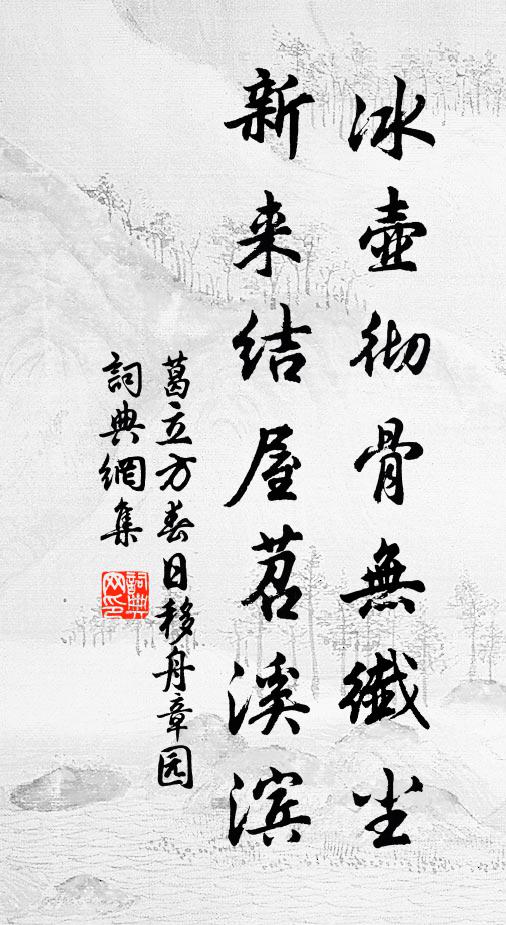 冰壺彻骨無纖尘
新来结屋苕溪滨
葛立方春日移舟章园
詞典網集
詞典网印